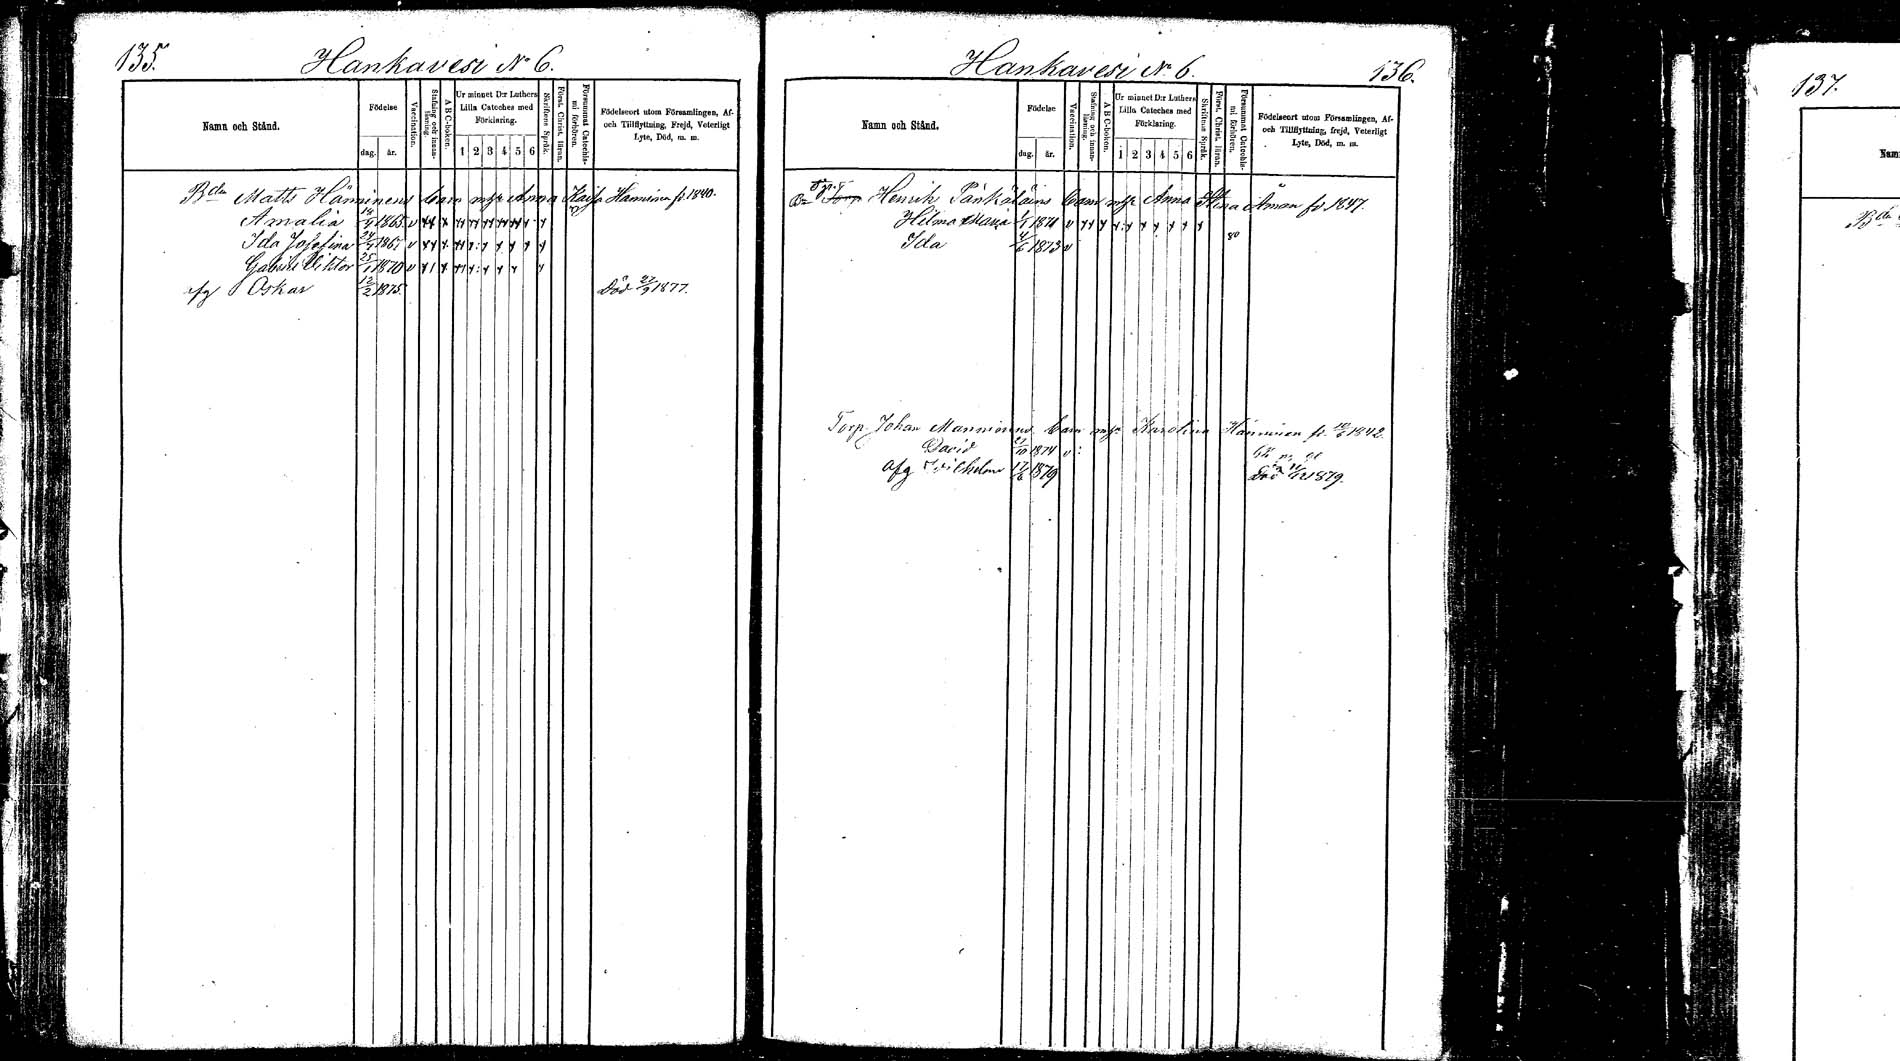 135.
Hankavesi № 6.
Namn och Stånd.
Födelse
dag.
år.
Vaccination.
Stafning och innan-
läsning.
A B C-boken.
Ur minnet D:r Luthers
Lilla Cateches med
Förklaring.
1 2 3 4 5 6
Skriftens Språk.
Först. Christ. läran.
Försummat Catechis-
mi förhören.
Födelseort utom Församlingen, Af-
och Tillflyttning, Frejd, Veterligt
Lyte, Död, m. m.
Bden Matts Hänninens barn m/h Anna Kaisa Hänninen fd 1840.
Amalia 14/9 1865 v
Ida Josefina 24/7 1867 v
Gabriel Viktor 25/1 1870 v
afg Oskar 12/2 1875. Död 27/9 1877.
Hankavesi № 6.
136.
Namn och Stånd.
Födelse
dag.
år.
Vaccination.
Stafning och innan-
läsning.
A B C-boken.
Ur minnet D:r Luthers
Lilla Cateches med
Förklaring.
1 2 3 4 5 6
Skriftens Språk.
Först. Christ. läran.
Försummat Catechis-
mi förhören.
Födelseort utom Församlingen, Af-
och Tillflyttning, frejd, Veterligt
Lyte, Död, m. m.
Torp Henrik Pänkäläins barn m/h Anna Stina Åman fd 1847.
Hilma Maria 1/1 1871 v
80
Ida 4/6 1873 v
Torp. Johan Manninens barn m/h Karolina Hänninen fd 10/6 1842.
David 21/10 1874 v
afg Vilhelm 17/6 1879 Död 11/12 1879.
137.